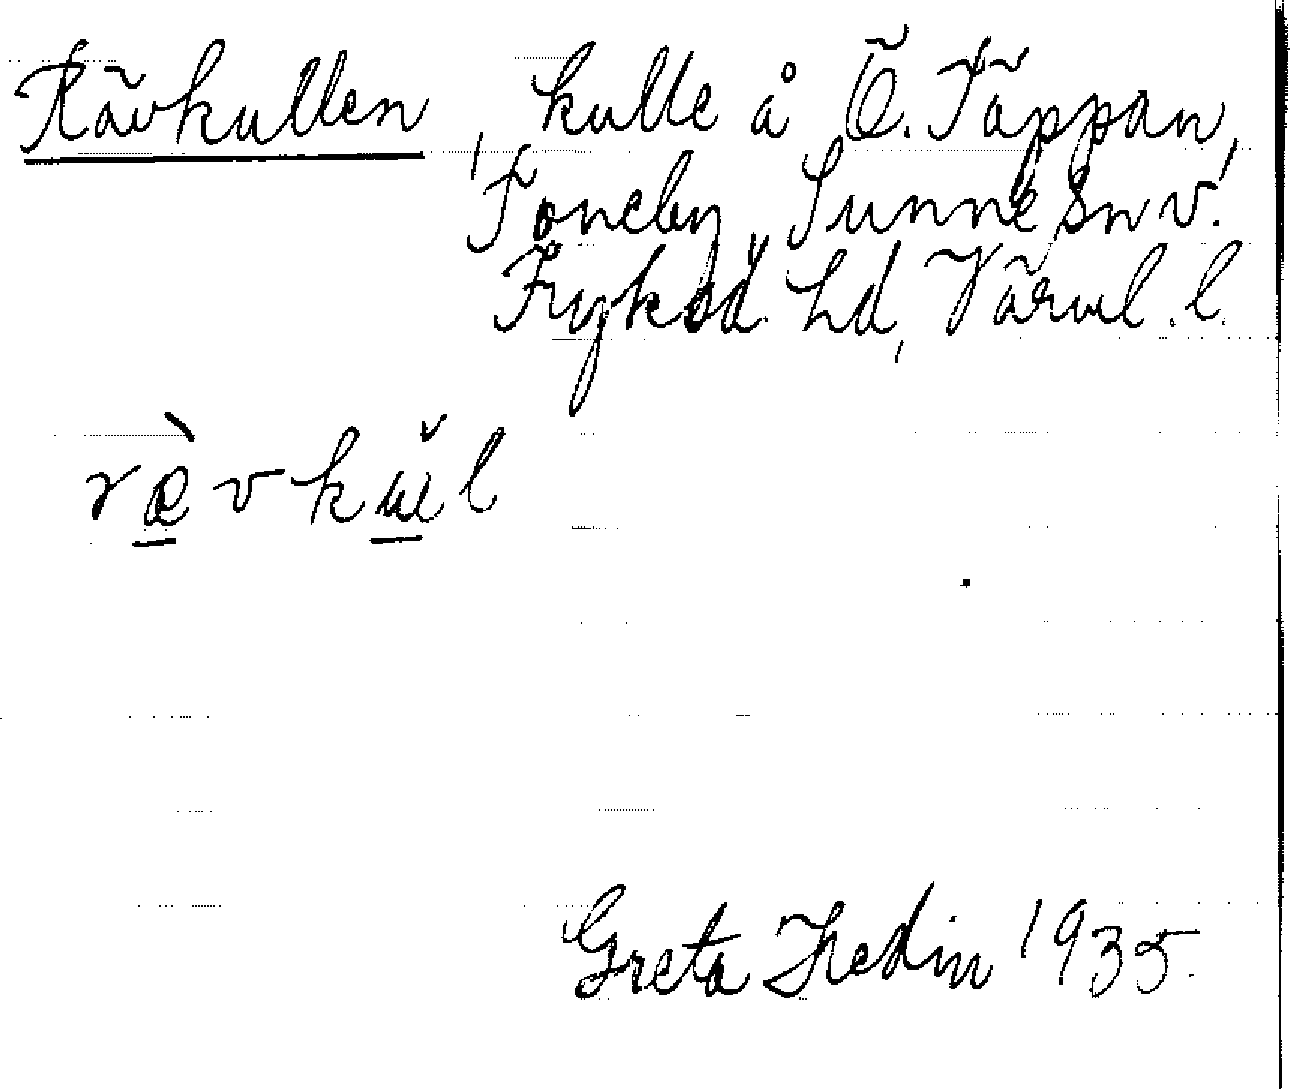 Rävkullen, kulle å Ö. Täppan,
Toneby, Sunne sn v.
Fryksd. hd, Värml. l.
rævkul
Greta Hedin 1935.